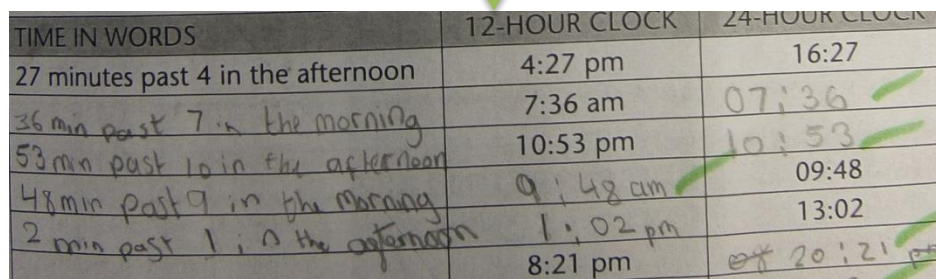 TIME IN WORDS 12-HOUR CLOCK 24-HOUR CLOCK
27 minutes past 4 in the afternoon 4:27 pm 16:27
36 min past 7 in the morning 7:36 am 07:36
53 min past 10 in the afternoon 10:53 pm 10:53
48 min past 9 in the morning 9:48 am 09:48
2 min past 1 in the afternoon 1:02 pm 13:02
8:21 pm 20:21